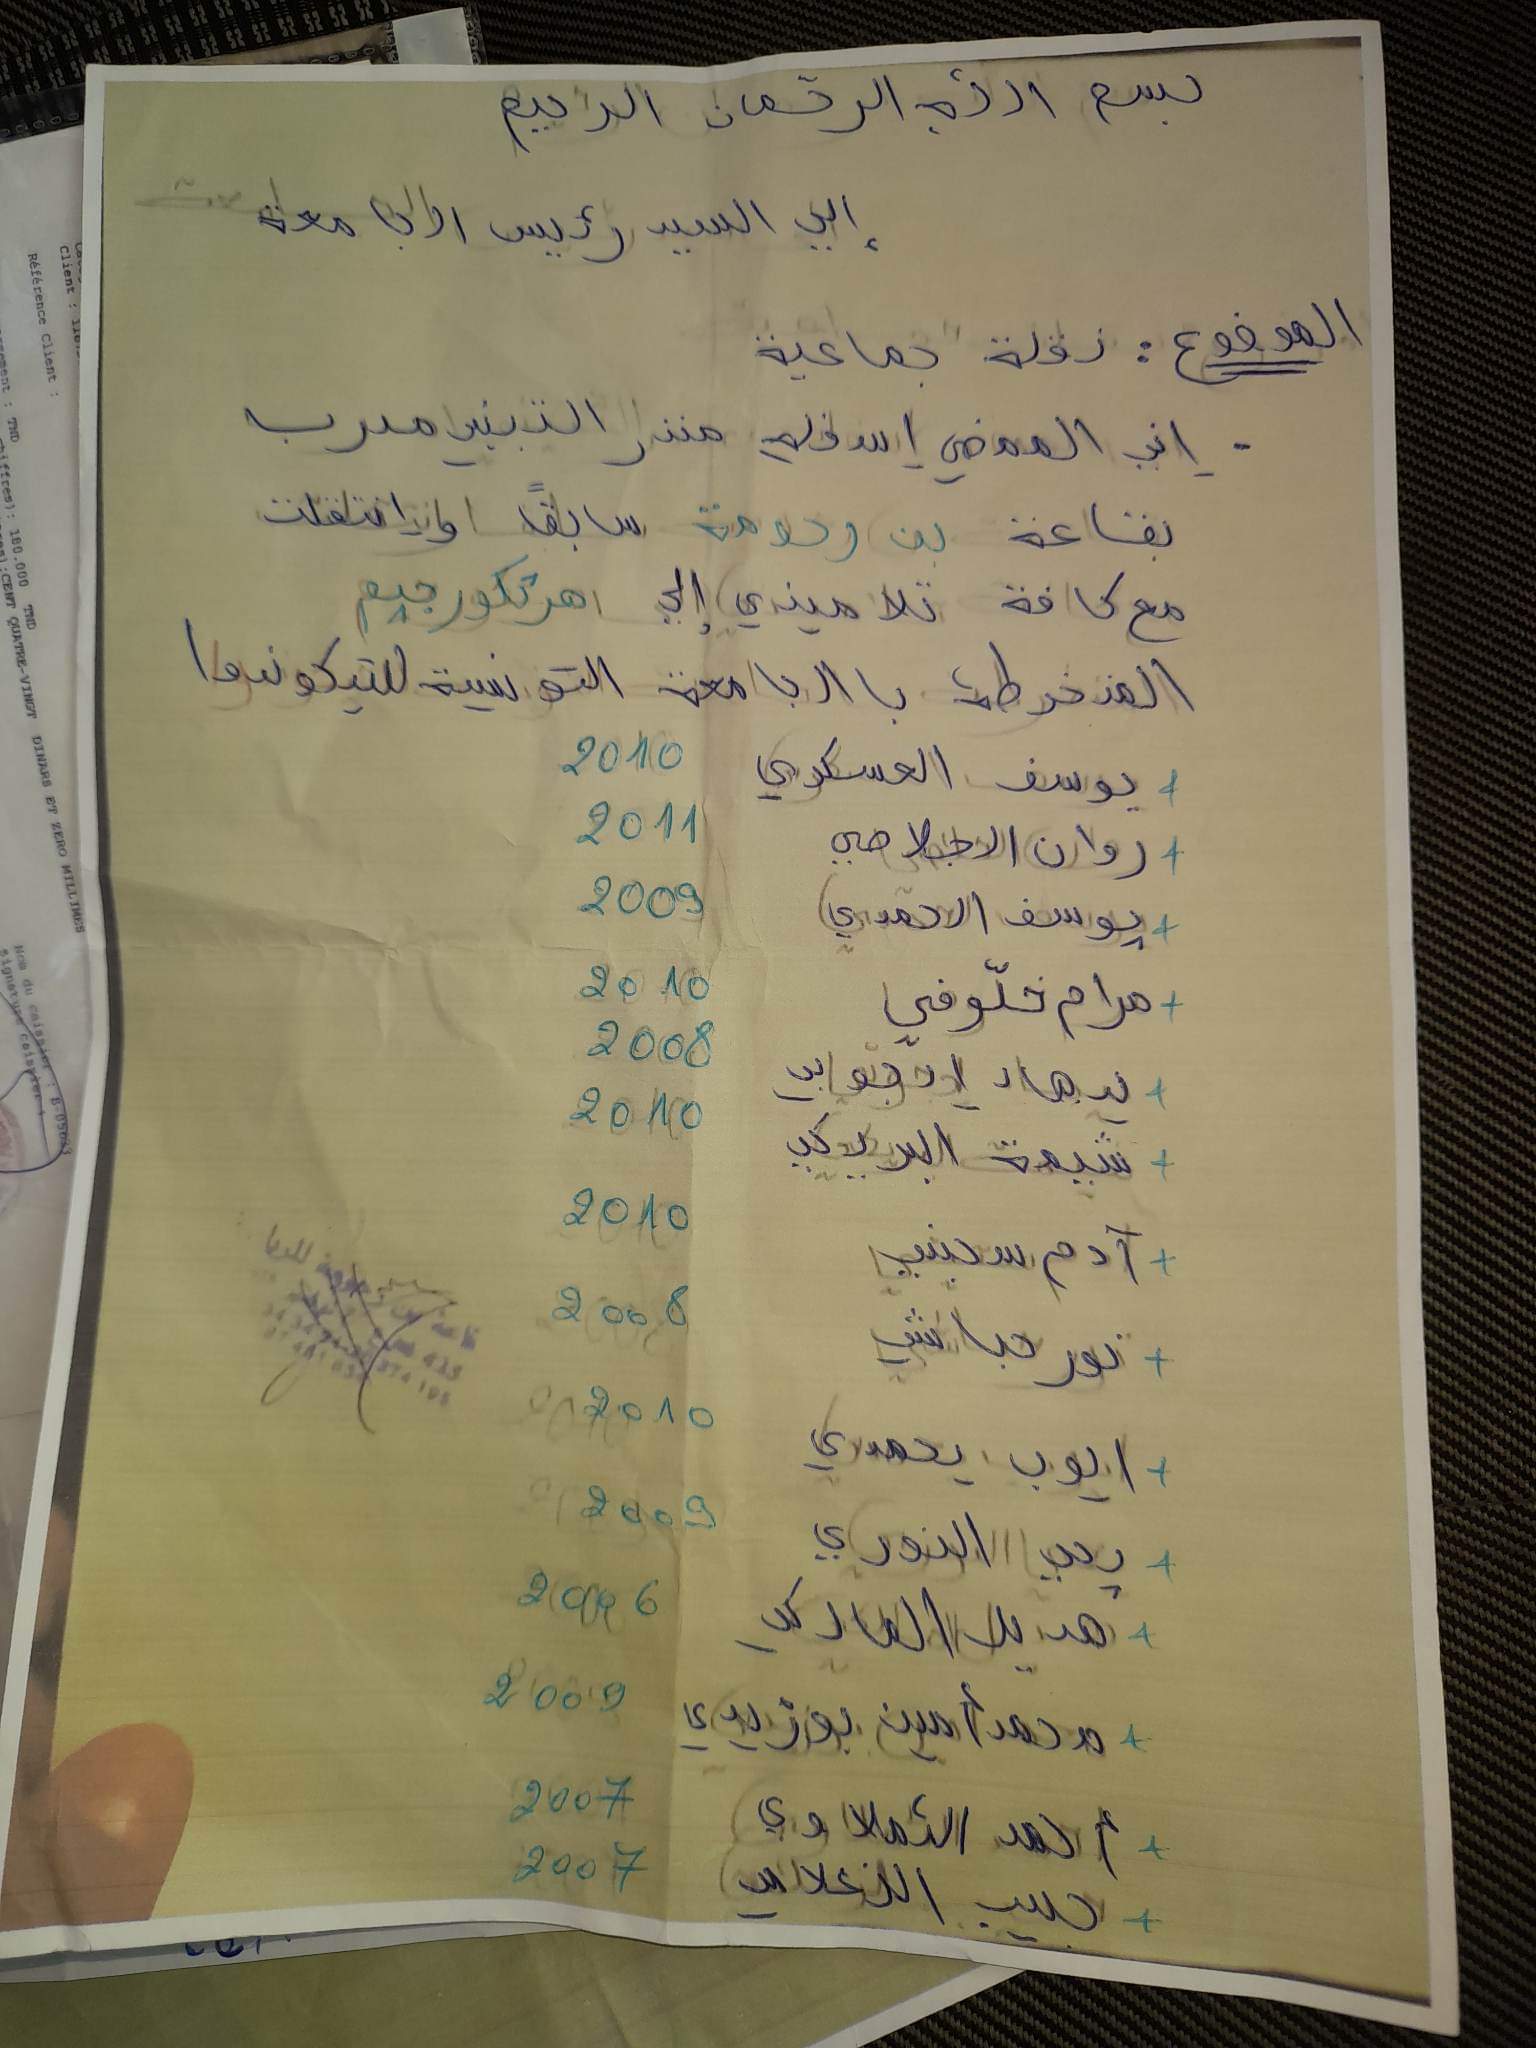 بسم الله الرحمان الرحيم
إلى السيد رئيس الجامعة
الموضوع : نقلة جماعية
- إني الممضي أسفله منذر التبيني مدرب
بقاعة بن رحومة سابقًا وإنتقلت
مع كافة تلاميذي إلى
المنخرطة بالجامعة التونسية للتيكوندوا
+ يوسف العسكري 2010
+ روان الاجلاصي 2011
+ يوسف الاحمدي 2009
+ مرام خلّوفي 2010
+ 2008
+ شيمة 2010
+ آدم سحيني 2010
+ نور حباشي 2008
+ ايوب يحمدي 2010
+ يحي النوري 2009
+ هديل 2006
+ محمد أمين بوزيدي 2009
+ أحمد الثملاوي 2007
+ حبيب الزغلامي 2007
Client :
Référence Client :
TND
180.000 TND
CENT QUATRE-VINGT DINARS ET ZERO MILLIMES
Nom du caissier :
Signature caissier :